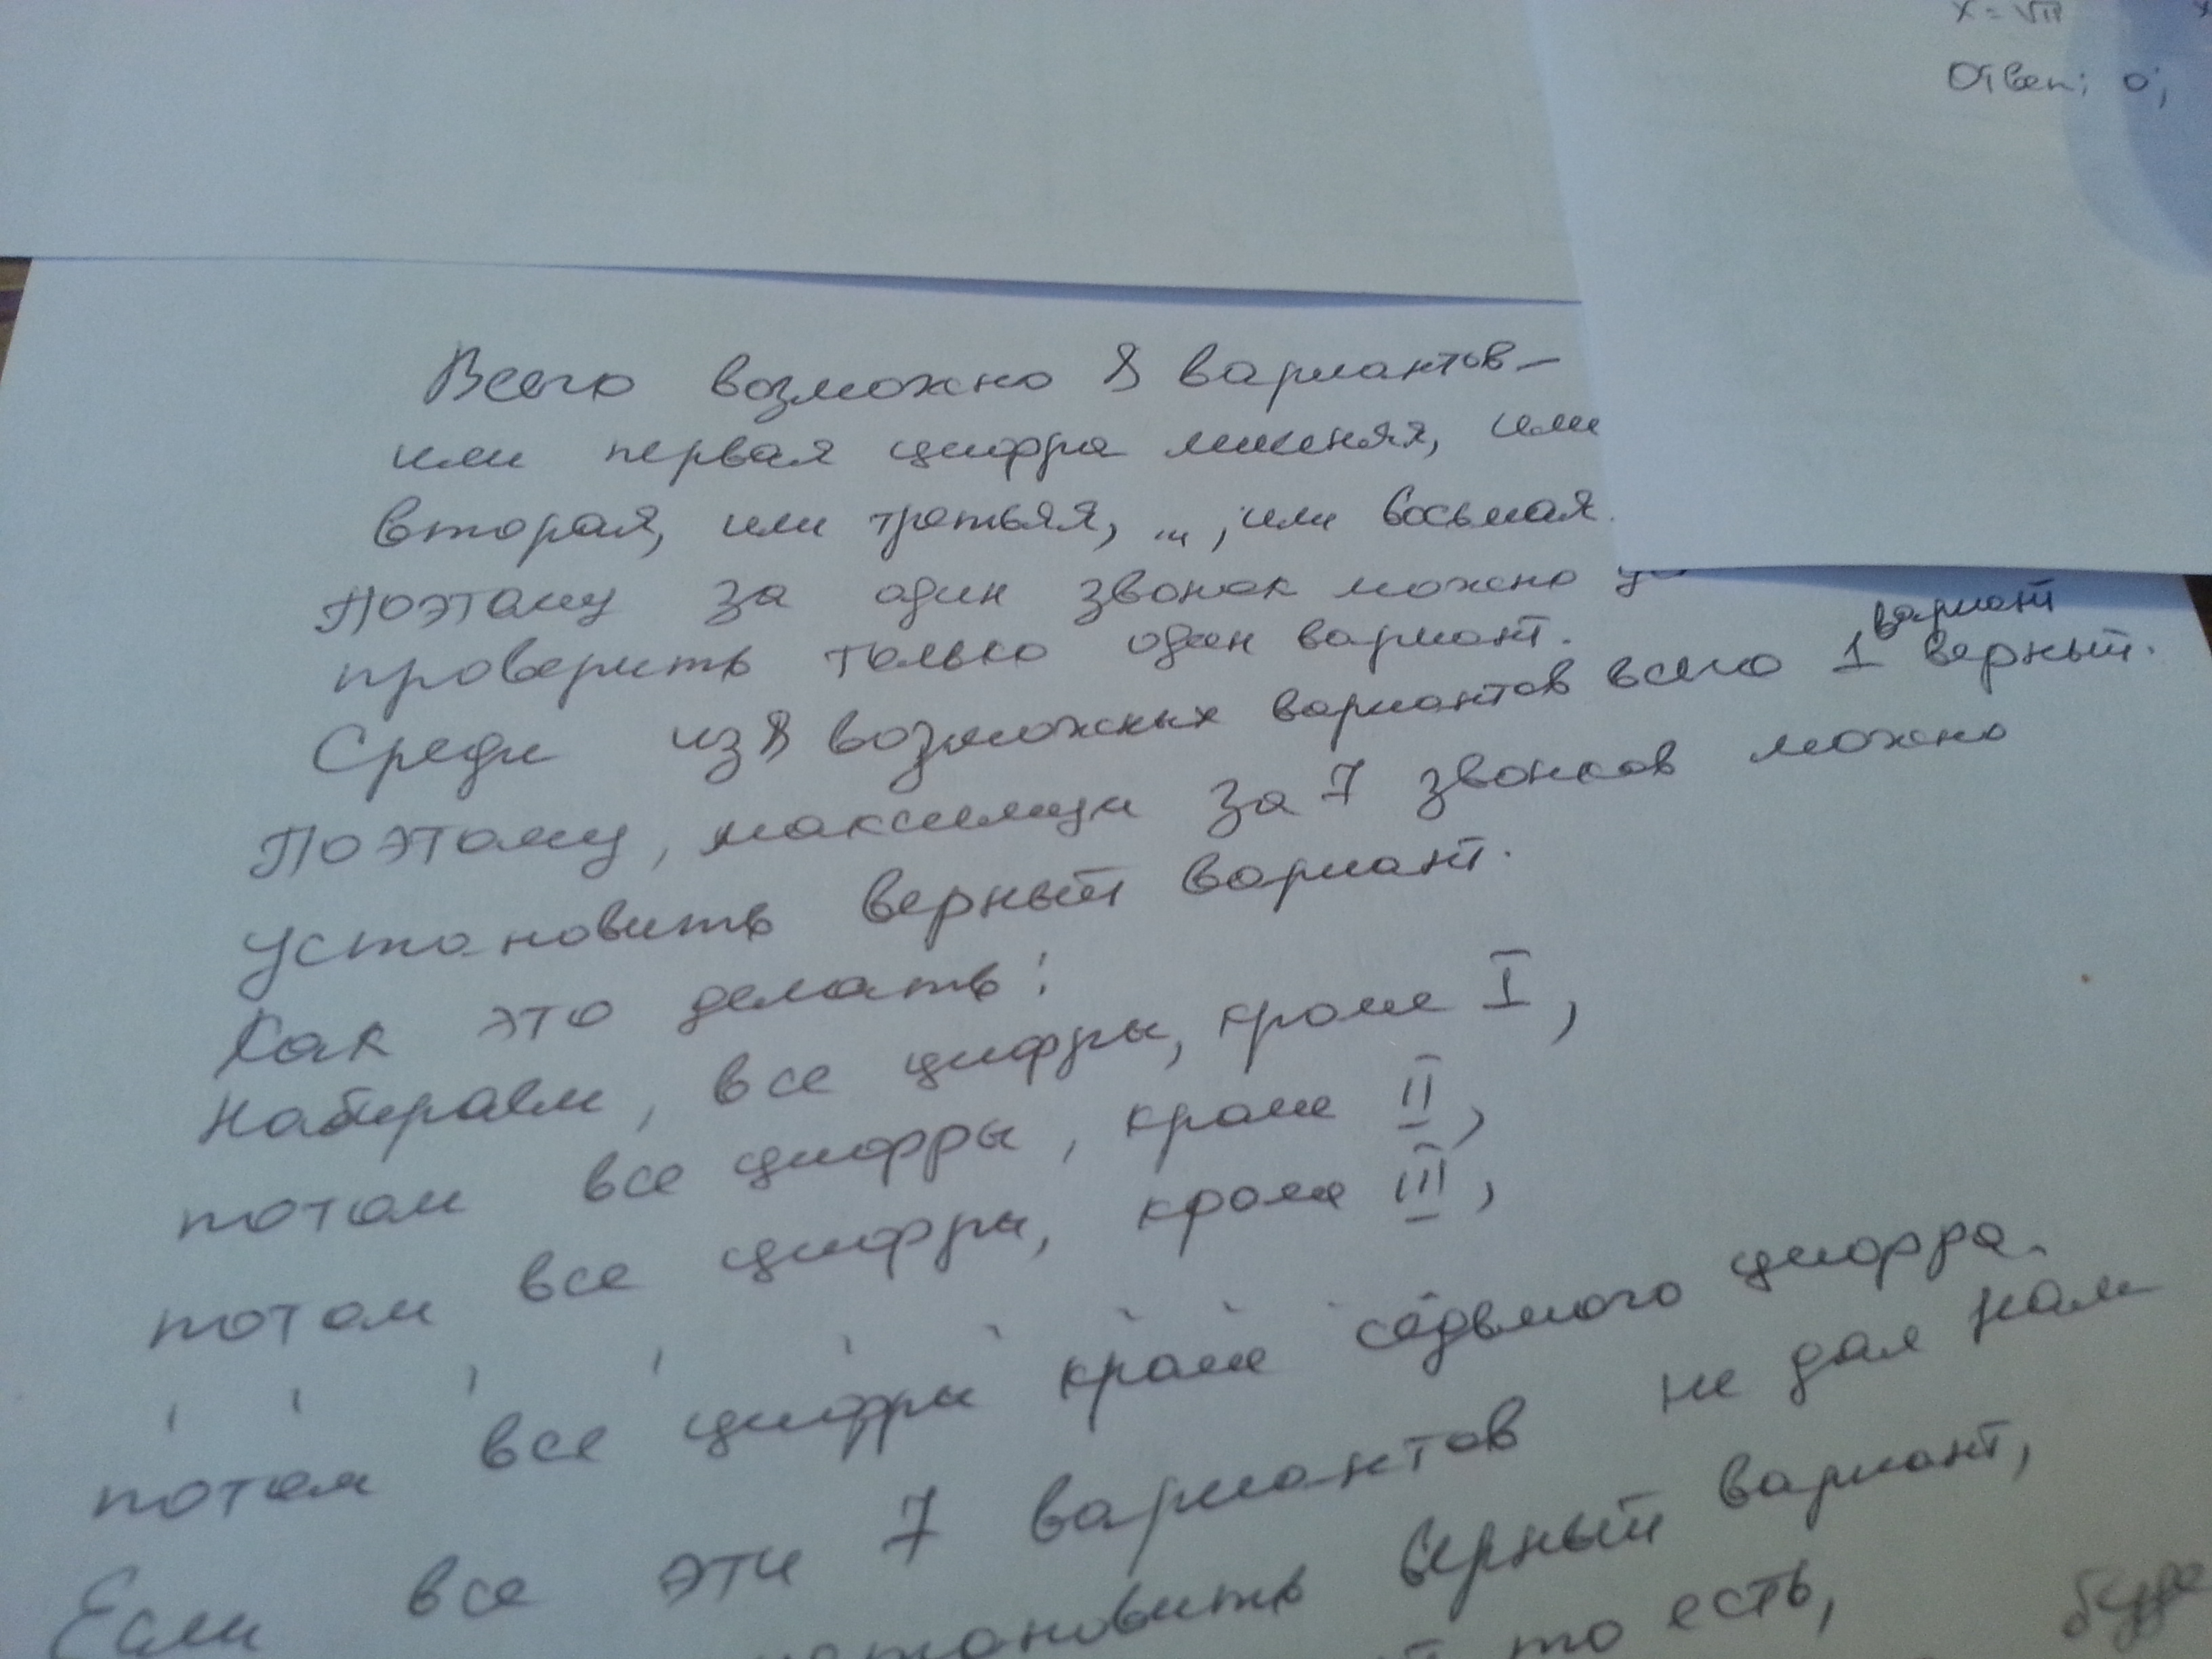 x = √17
Ответ: 0;
Всего возможно 8 вариантов –
или первая цифра лишняя, или
вторая, или третья, ..., или восьмая.
Поэтому за один звонок можно
проверить только один вариант.
вариант
Среди из 8 возможных вариантов всего 1 верный.
Поэтому, максимум за 7 звонков можно
установить верный вариант.
Как это делать:
Набираем, все цифры, кроме I,
потом все цифры, кроме II,
потом все цифры, кроме III,
потом все цифры кроме седьмого цифра.
Если все эти 7 вариантов не дал нам
установить верный вариант,
то есть,